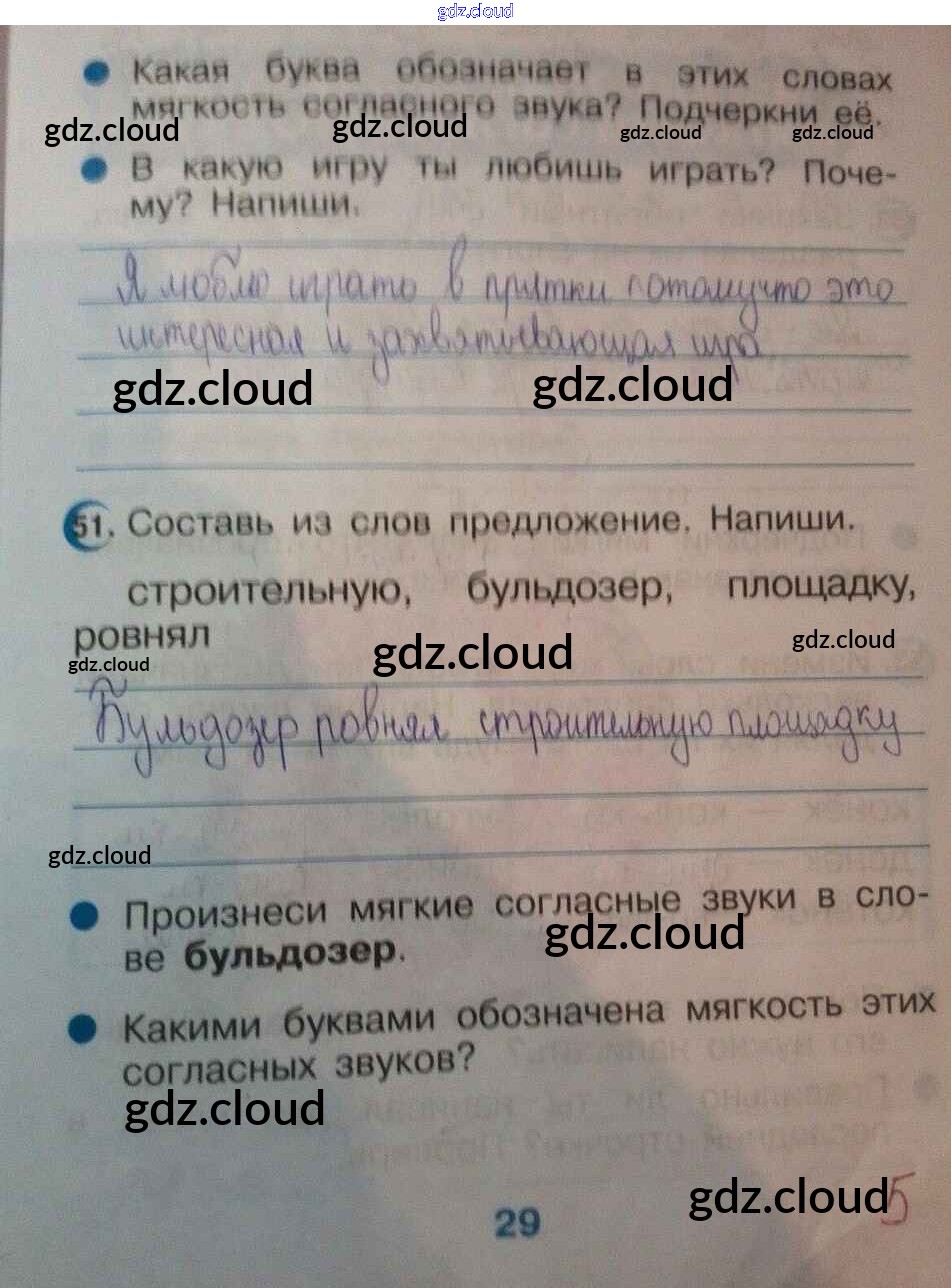 gdz.cloud
Какая буква обозначает в этих словах
мягкость согласного звука? Подчеркни её.
gdz.cloud gdz.cloud gdz.cloud gdz.cloud
В какую игру ты любишь играть? Поче-
му? Напиши.
Я люблю играть в прятки потомучто это
интересная и захватывающая игра
gdz.cloud gdz.cloud
51. Составь из слов предложение. Напиши.
строительную, бульдозер, площадку,
ровнял
gdz.cloud gdz.cloud gdz.cloud
Бульдозер ровнял строительную площадку
gdz.cloud
Произнеси мягкие согласные звуки в сло-
ве бульдозер.
gdz.cloud
Какими буквами обозначена мягкость этих
согласных звуков?
gdz.cloud
gdz.cloud 5
29